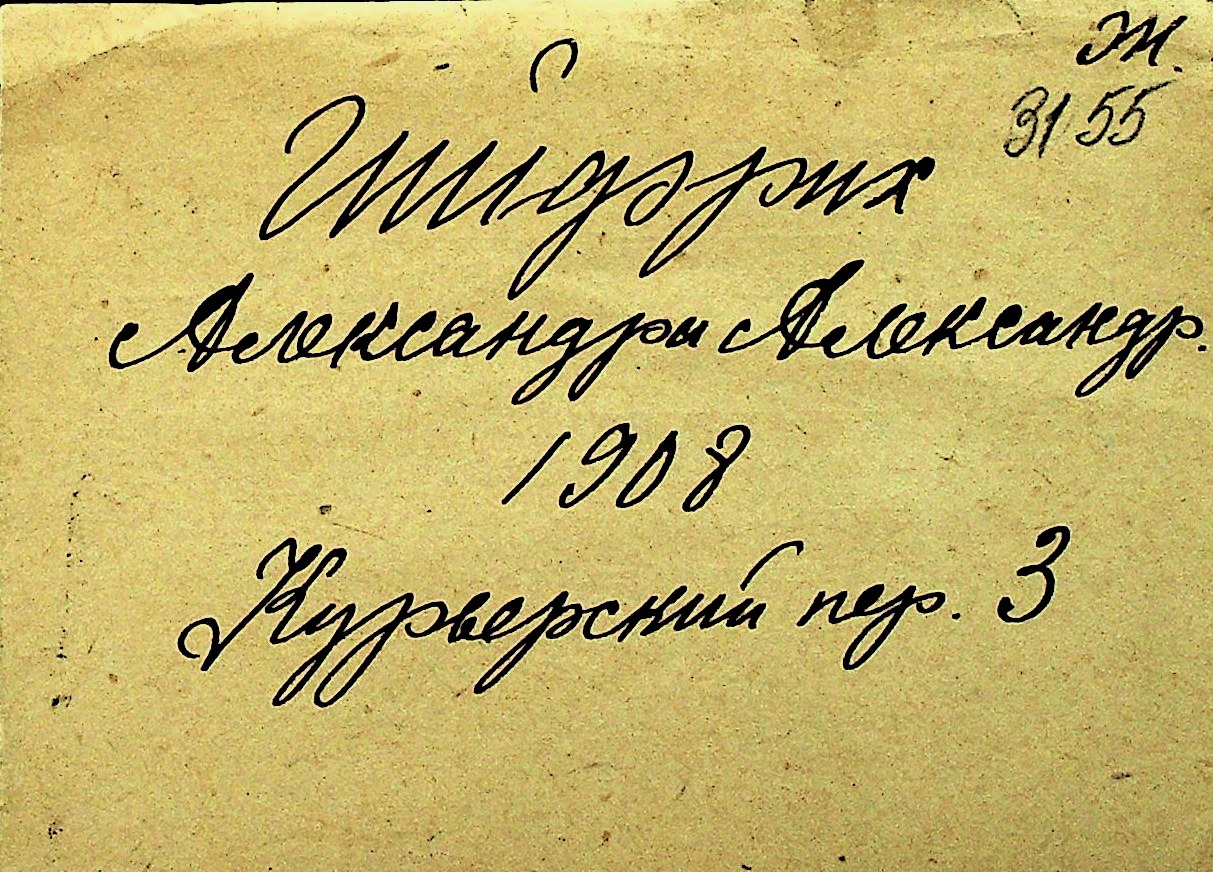 Ж.
3155
Шйдзрих
Александры Александр.
1908
Курьерский пер. 3